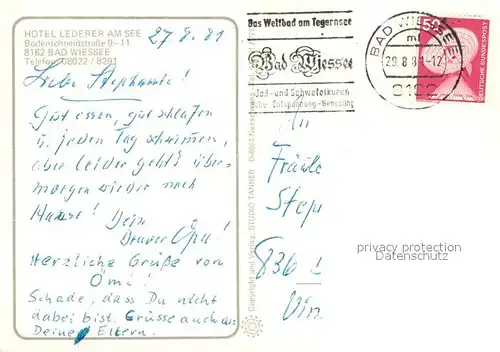 HOTEL LEDERER AM SEE
Bodenschneidstraße 9-11
8182 BAD WIESSEE
Telefon 08022 / 8291
27.8.81
Das Weltbad am Tegernsee
Bad Wiessee
Jod- und Schwefelkuren
Ruhe · Entspannung · Genesung
BAD WIESSEE
29.8.81-12
8182
DEUTSCHE BUNDESPOST
Liebe Stephanie!
Gut essen, gut schlafen
u. jeden Tag schwimmen,
aber leider geht's über-
morgen wieder nach
Hause! Dein
Braver Opa!
Herzliche Grüße von
Omi!
Schade, dass Du nicht
dabei bist. Grüsse auch an
Deine Eltern.
Copyright and Verlag: STUDIO TANNER
An
Fräule
Step
836
privacy protection
Datenschutz